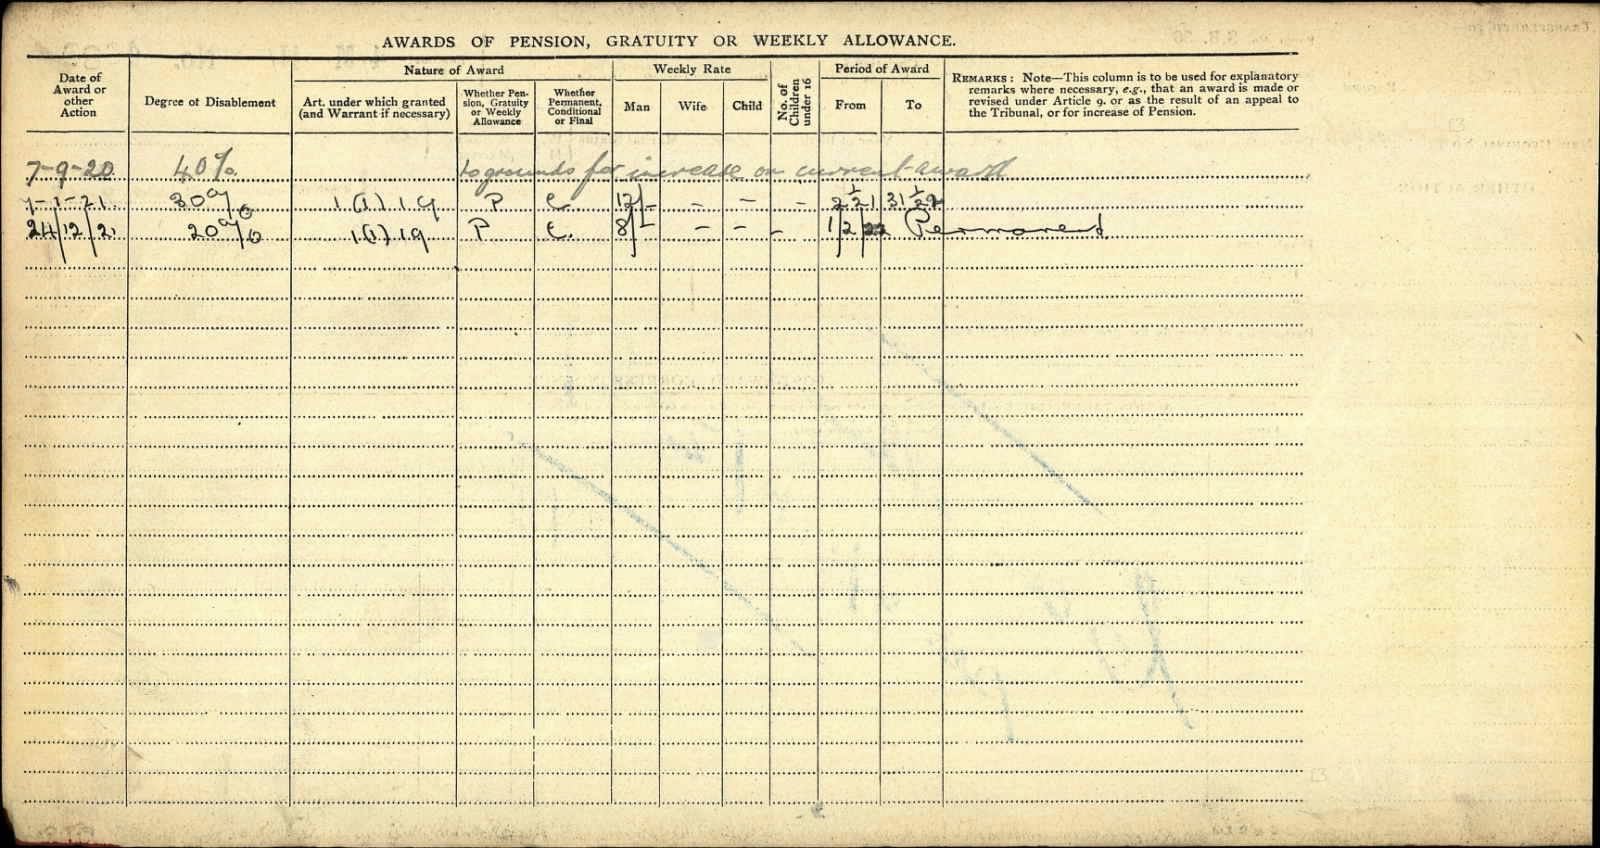 AWARDS OF PENSION, GRATUITY OR WEEKLY ALLOWANCE.
Date of Award or other Action
Degree of Disablement
Nature of Award
Art. under which granted (and Warrant if necessary)
Whether Pension, Gratuity or Weekly Allowance
Whether Permanent, Conditional or Final
Weekly Rate
Man
Wife
Child
No. of Children under 16
Period of Award
From
To
REMARKS: Note—This column is to be used for explanatory
remarks where necessary, e.g., that an award is made or
revised under Article 9. or as the result of an appeal to
the Tribunal, or for increase of Pension.
7-9-20 40% grounds for increase on current award
7-1-21 30% 1(1)19 P C 12/- - - - 2 2 1 31 1 22
24/12/21 20% 1(1)19 P C. 8/- - - - 1/2/22 Permanent